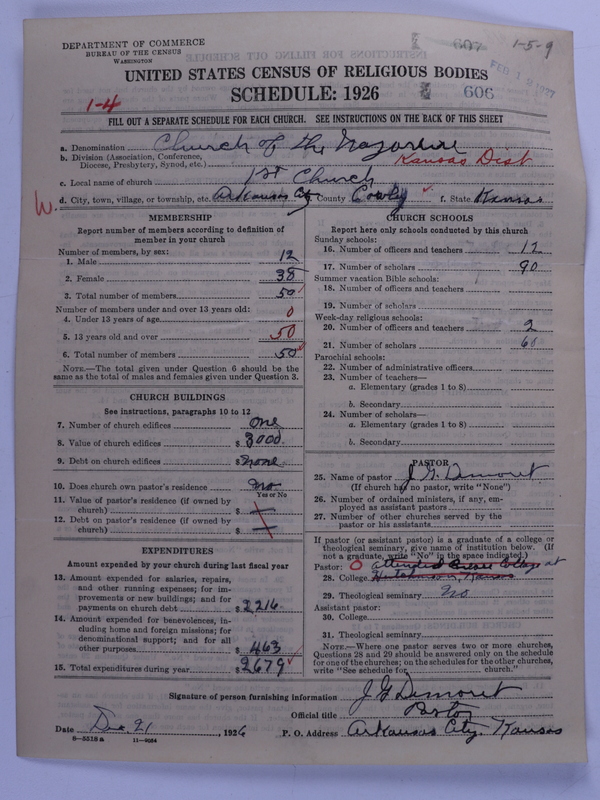 DEPARTMENT OF COMMERCE
BUREAU OF THE CENSUS
WASHINGTON
607
1-5-9
UNITED STATES CENSUS OF RELIGIOUS BODIES
FEB 19 1927
SCHEDULE: 1926
606
1-4
FILL OUT A SEPARATE SCHEDULE FOR EACH CHURCH. SEE INSTRUCTIONS ON THE BACK OF THIS SHEET
a. Denomination Church of the Nazarene
b. Division (Association, Conference, Diocese, Presbytery, Synod, etc.) Kansas Dist
c. Local name of church 1st Church
W. d. City, town, village, or township, etc. Arkansas City e. County Cowly f. State Kansas
MEMBERSHIP
Report number of members according to definition of
member in your church
Number of members, by sex:
1. Male 12
2. Female 38
3. Total number of members 50
Number of members under and over 13 years old:
4. Under 13 years of age 0
5. 13 years old and over 50
6. Total number of members 50
NOTE.—The total given under Question 6 should be the
same as the total of males and females given under Question 3.
CHURCH BUILDINGS
See instructions, paragraphs 10 to 12
7. Number of church edifices one
8. Value of church edifices $ 3000.
9. Debt on church edifices $ none
10. Does church own pastor's residence? no
Yes or No
11. Value of pastor's residence (if owned by
church) $ —
12. Debt on pastor's residence (if owned by
church) $ —
EXPENDITURES
Amount expended by your church during last fiscal year
13. Amount expended for salaries, repairs,
and other running expenses; for im-
provements or new buildings; and for
payments on church debt $ 2216.
14. Amount expended for benevolences, in-
cluding home and foreign missions; for
denominational support; and for all
other purposes 463
15. Total expenditures during year $ 2679
CHURCH SCHOOLS
Report here only schools conducted by this church
Sunday schools:
16. Number of officers and teachers 12
17. Number of scholars 90
Summer vacation Bible schools:
18. Number of officers and teachers
19. Number of scholars
Week-day religious schools:
20. Number of officers and teachers 2
21. Number of scholars 60
Parochial schools:
22. Number of administrative officers
23. Number of teachers—
a. Elementary (grades 1 to 8)
b. Secondary
24. Number of scholars—
a. Elementary (grades 1 to 8)
b. Secondary
PASTOR
25. Name of pastor J G Demoret
(If church has no pastor, write "None")
26. Number of ordained ministers, if any, em-
ployed as assistant pastors
27. Number of other churches served by the
pastor or his assistants
If pastor (or assistant pastor) is a graduate of a college or
theological seminary, give name of institution below. (If
not a graduate, write "No" in the space indicated.)
Pastor: O attended College at
28. College Hutchinson, Kansas
29. Theological seminary No
Assistant pastor:
30. College
31. Theological seminary
NOTE.—Where one pastor serves two or more churches,
Questions 28 and 29 should be answered only on the schedule
for one of the churches; on the schedules for the other churches,
write "See schedule for church."
Signature of person furnishing information J G Demoret
Official title Pastor
Date Dec 21, 1926 P. O. Address Arkansas City, Kansas
8—5518a 11—9664